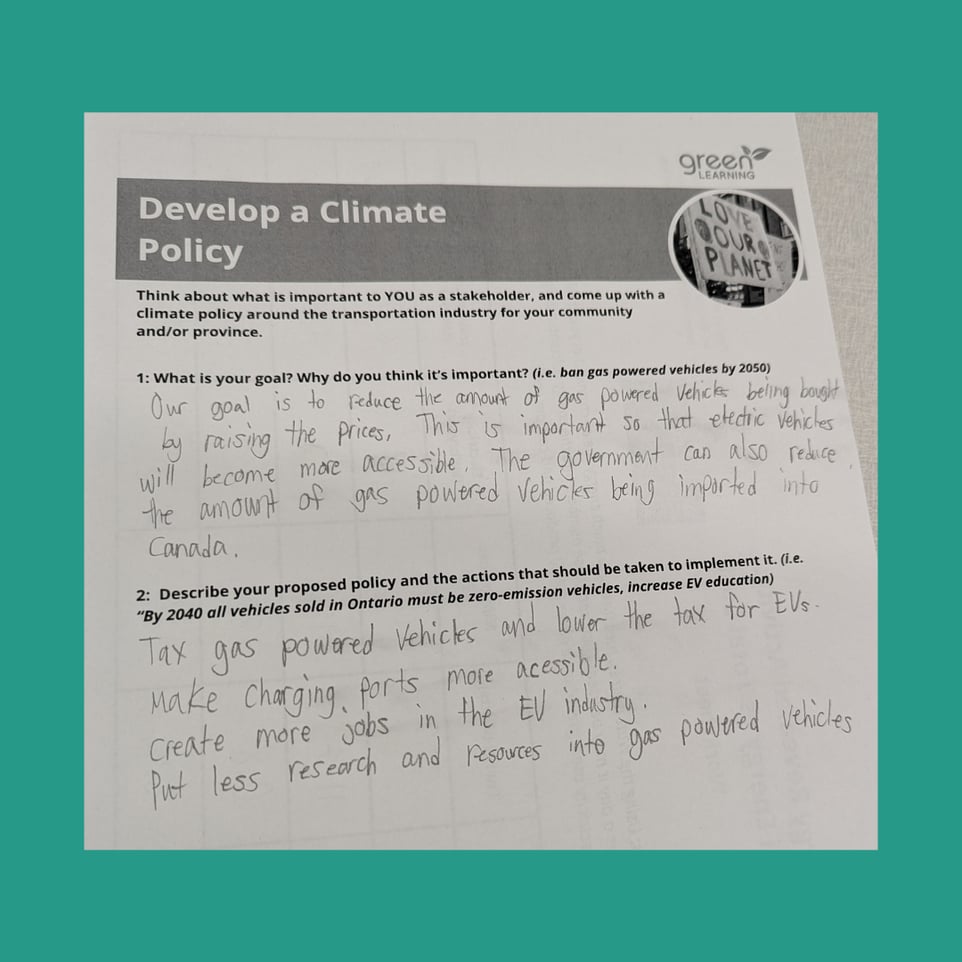 green
LEARNING
Develop a Climate
Policy
LOVE
OUR
PLANET
Think about what is important to YOU as a stakeholder, and come up with a
climate policy around the transportation industry for your community
and/or province.
1: What is your goal? Why do you think it's important? (i.e. ban gas powered vehicles by 2050)
Our goal is to reduce the amount of gas powered Vehicles being bought
by raising the prices. This is important so that electric vehicles
will become more accessible. The government can also reduce
the amount of gas powered vehicles being imported into
Canada.
2: Describe your proposed policy and the actions that should be taken to implement it. (i.e.
"By 2040 all vehicles sold in Ontario must be zero-emission vehicles, increase EV education)
Tax gas powered Vehicles and lower the tax for EVs.
Make Charging ports more acessible.
Create more jobs in the EV industry.
Put less research and resources into gas powered vehicles